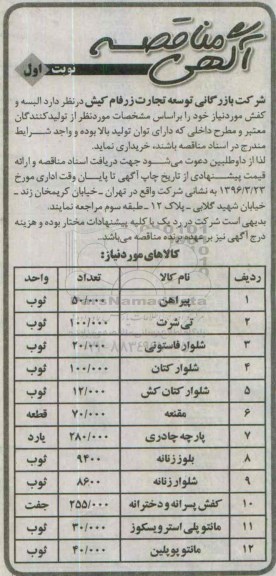 آگهی مناقصه
نوبت اول
شرکت بازرگانی توسعه تجارت زرفام کیش در نظر دارد البسه و
کفش موردنیاز خود را براساس مشخصات موردنظر از تولیدکنندگان
معتبر و مطرح داخلی که دارای توان تولید بالا بوده و واجد شرایط
مندرج در اسناد مناقصه باشند، خریداری نماید.
لذا از داوطلبین دعوت می‌شود جهت دریافت اسناد مناقصه و ارائه
قیمت پیشنهادی از تاریخ چاپ آگهی تا پایان وقت اداری مورخ
۱۳۹۶/۳/۲۳ به نشانی شرکت واقع در تهران - خیابان کریمخان زند -
خیابان شهید گلابی - پلاک ۱۲ - طبقه سوم مراجعه نمایند.
بدیهی است شرکت در رد یک یا کلیه پیشنهادات مختار بوده و هزینه
درج آگهی نیز بر عهده برنده مناقصه می‌باشد.
کالاهای موردنیاز:
ردیف نام کالا تعداد واحد
۱ پیراهن ۵۰/۰۰۰ ثوب
۲ تی شرت ۱۰۰/۰۰۰ ثوب
۳ شلوار فاستونی ۲۰/۰۰۰ ثوب
۴ شلوار کتان ۱۰۰/۰۰۰ ثوب
۵ شلوار کتان کش ۱۲/۰۰۰ ثوب
۶ مقنعه ۷۰/۰۰۰ قطعه
۷ پارچه چادری ۲۸۰/۰۰۰ یارد
۸ بلوز زنانه ۹۴۰۰ ثوب
۹ شلوار زنانه ۸۶۰۰ ثوب
۱۰ کفش پسرانه و دخترانه ۲۵۵/۰۰۰ جفت
۱۱ مانتو پلی استر ویسکوز ۳۰/۰۰۰ ثوب
۱۲ مانتو پوپلین ۴۰/۰۰۰ ثوب